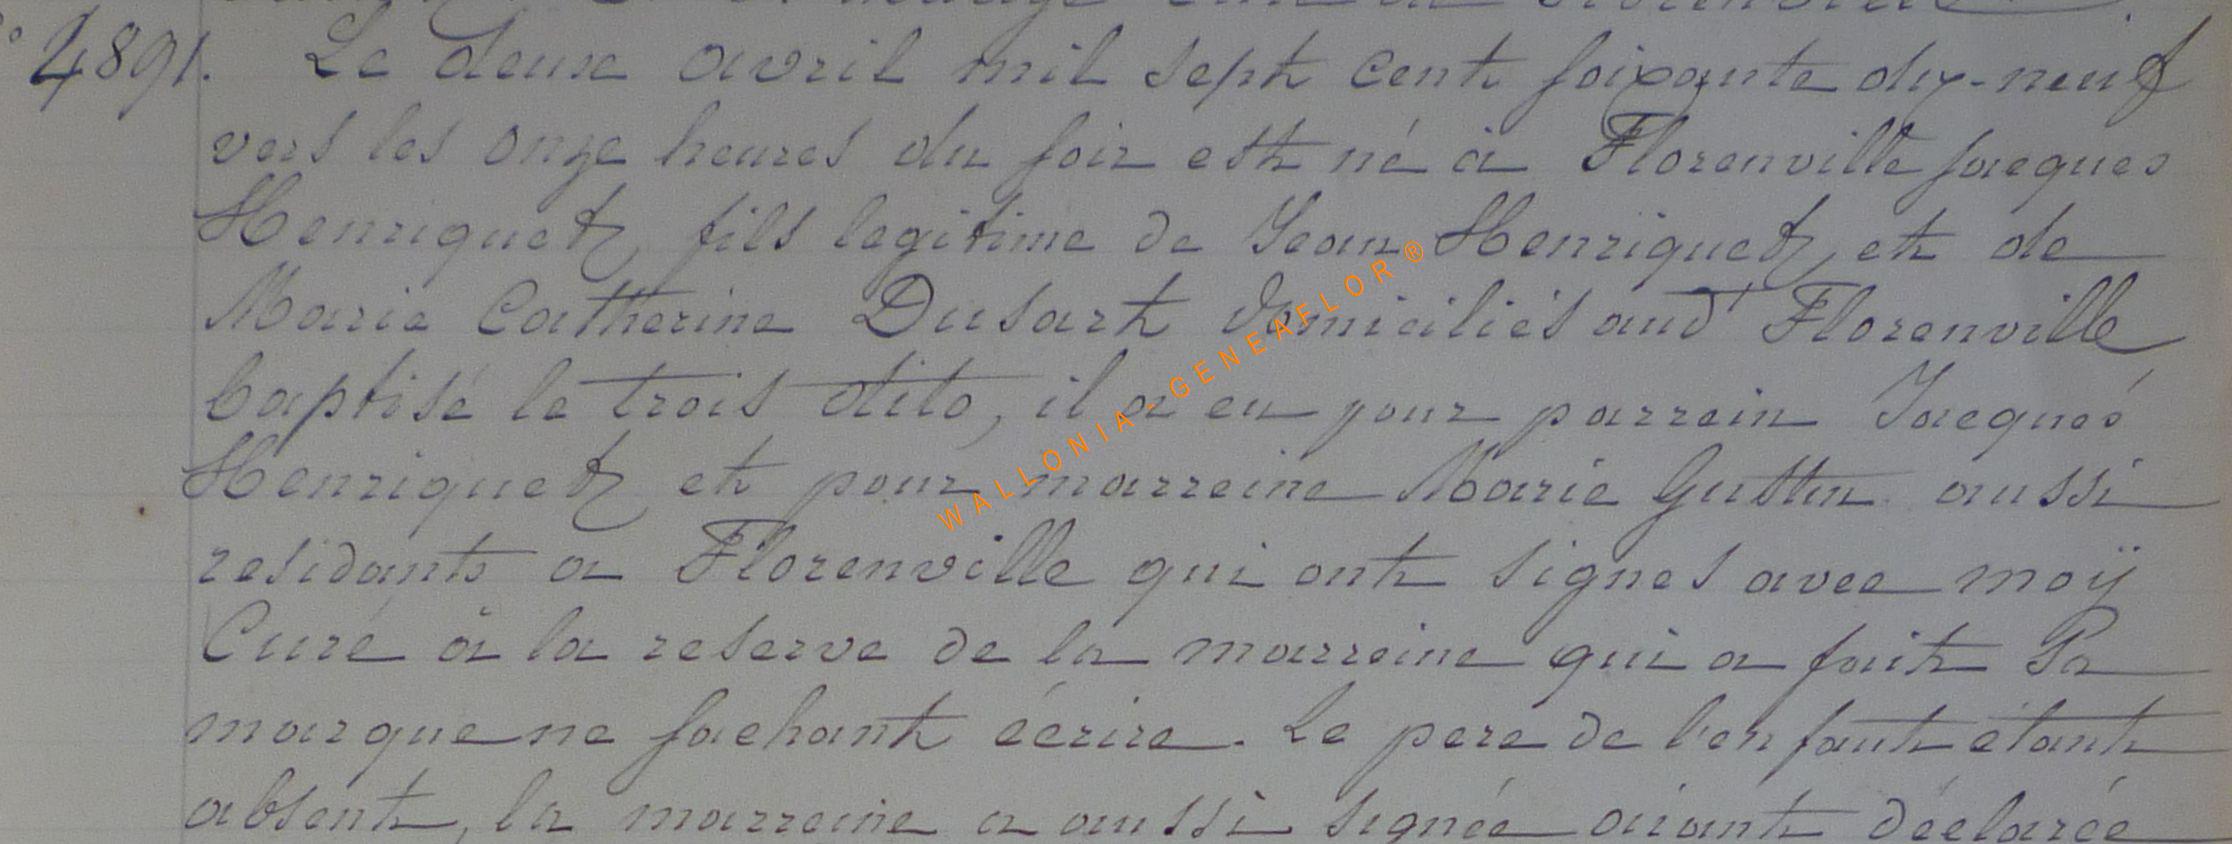 4891. Le deux avril mil sept cent soixante dix-neuf
vers les onze heures du soir est né à Florenville Jacques
Henriquet, fils legitime de Jean Henriquet, et de
Marie Catherine Dusart domiciliés aud' Florenville
baptisé le trois dito, il a eu pour parrein Jacques
Henriquet et pour marreine Marie Gustin aussi
residants a Florenville qui ont signés avec moÿ
Curé à la reserve de la marreine qui a fait Sa
marque ne sachant écrire. Le pere de l'enfant étant
absent, la marreine a aussi signée aiant déclarée
WALLONIA-GENEAFLOR®